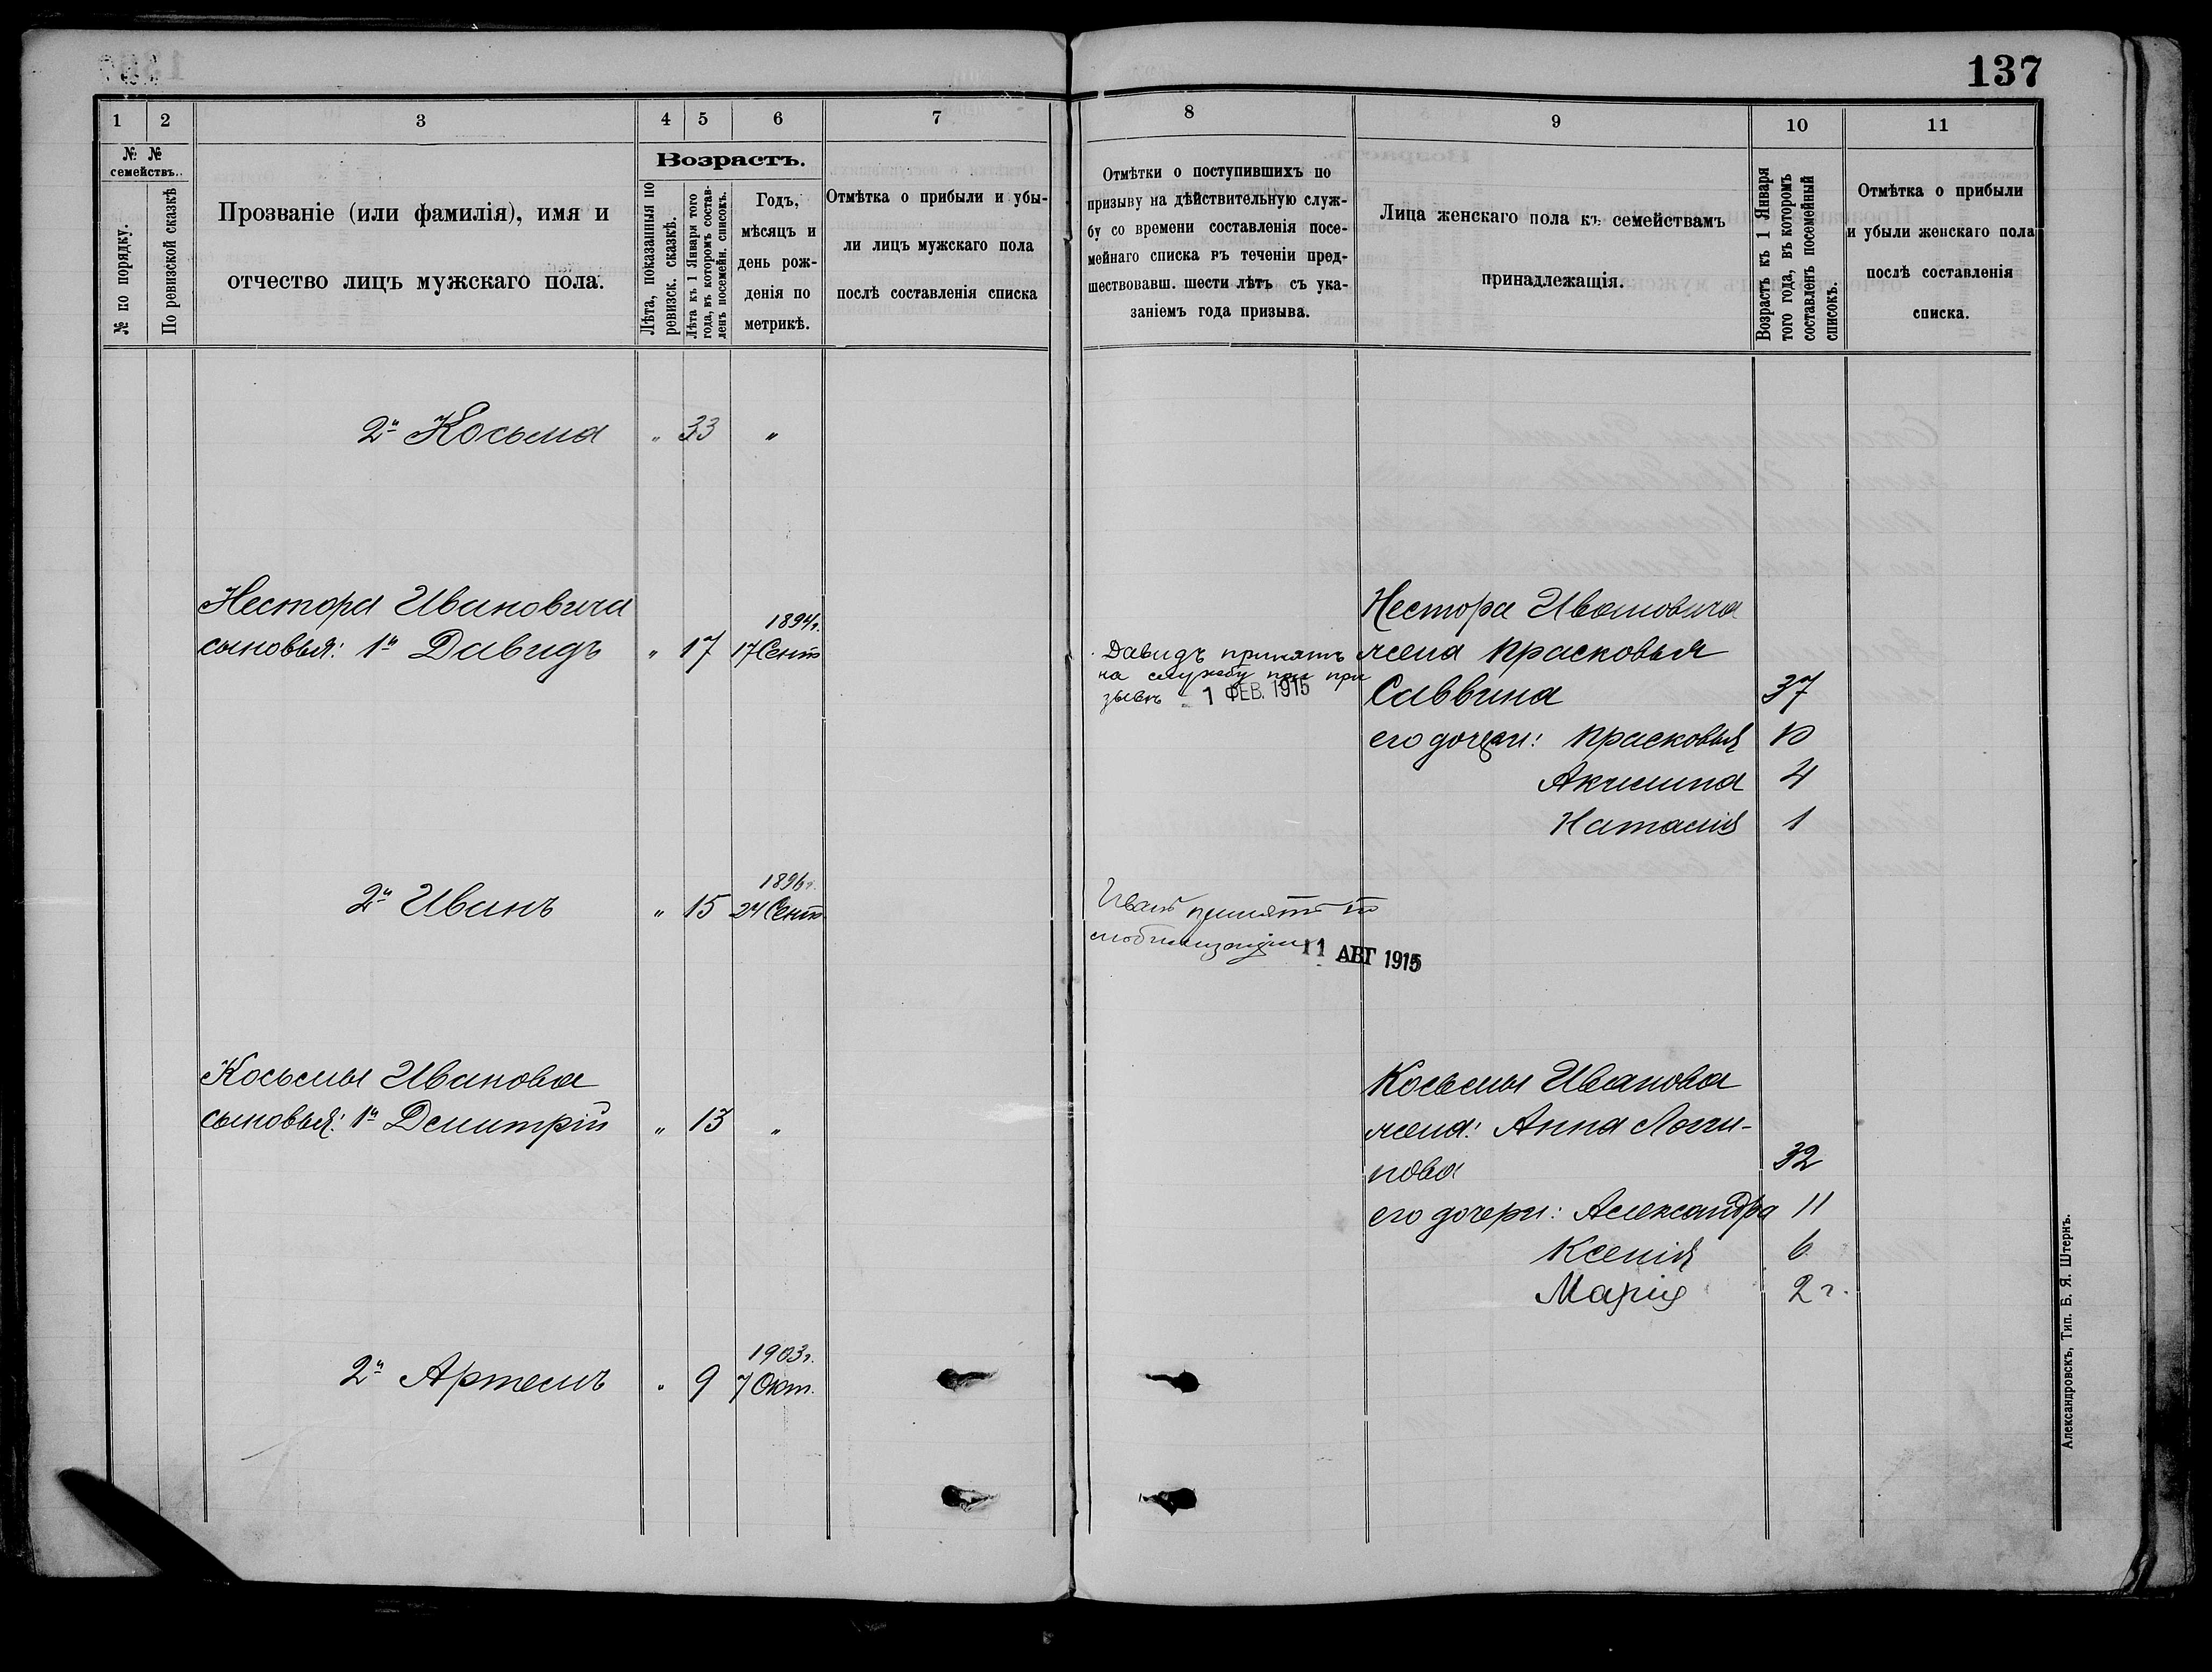 137
1
2
3
4
5
6
7
№ №
семействъ.
Возрастъ.
№ по порядку.
По ревизской сказкѣ
Прозваніе (или фамилія), имя и
отчество лицъ мужскаго пола.
Лѣта, показанныя по
ревизск. сказкѣ.
Лѣта къ 1 Января того
года, въ которомъ состав-
ленъ посемейн. списокъ.
Годъ,
мѣсяцъ и
день рож-
денія по
метрикѣ.
Отмѣтка о прибыли и убы-
ли лицъ мужскаго пола
послѣ составленія списка
2й Косьма " 33 "
Нестора Ивановича
1894г.
сыновья: 1й Давидъ " 17 17 Сент
1896г.
2й Иванъ " 15 24 Сент.
Косьмы Иванова
сыновья: 1й Демитрій " 13 "
1903г.
2й Артемъ " 9 7 Окт.
8
9
10
11
Отмѣтки о поступившихъ по
призыву на дѣйствительную служ-
бу со времени составленія посе-
мейнаго списка въ теченіи пред-
шествовавш. шести лѣтъ съ ука-
заніемъ года призыва.
Лица женскаго пола къ семействамъ
принадлежащія.
Возрастъ къ 1 Января
того года, въ которомъ
составленъ посемейный
списокъ.
Отмѣтка о прибыли
и убыли женскаго пола
послѣ составленія
списка.
Давидъ принятъ
на службу при при
зывѣ 1 ФЕВ. 1915
Нестора Ивановича
жена Прасковья
Саввина 37
его дочери: Прасковья 10
Акилина 4
Наталія 1
Иванъ принятъ по
мобилизаціи 11 АВГ 1915
Косьмы Иванова
жена: Анна Логи-
нова 32
его дочери: Александра 11
Ксенія 6
Марія 2 г.
Александровскъ, Тип. Б. Я. Штернъ.